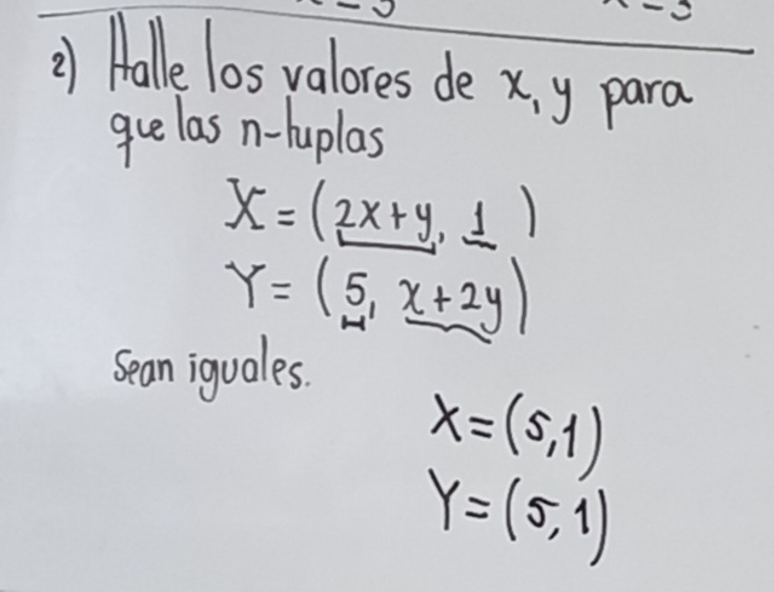 2) Halle los valores de x, y para
que las n-tuplas
X = (2x+y, 1)
Y = (5, x+2y)
Sean iguales.
X = (5,1)
Y = (5,1)